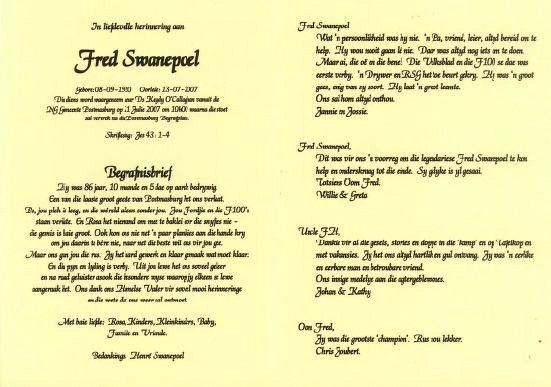 In liefdevolle herinnering aan
Fred Swanepoel
Gebore: 08-09-19 Oorlede: 13-07-2007
Die diens word waargeneem deur Ds Kayly O'Callaghan vanuit die
NG Gemeente Postmasburg op Julie 2007 om 10h00 waarna die stoet
sal vertrek na die Postmasburg Begrafplas.
Skriflesing: Jes 43: 1-4
Begrafnisbrief
Jy was 86 jaar, 10 maande en 5 dae op aarde bedrywig.
Een van die laaste groot geeste van Postmasburg het ons verlaat.
Ds, jou plek is leeg, en die wêreld alleen sonder jou. Jou Fordjie en die F100's
staan verlate. En Rosa het niemand om mee te baklei oor die snyfies nie -
die gemis is baie groot. Ook kan ons nie net 'n paar plankies aan die hande kry
om jou daarin te bêre nie, naar net die beste wil ons vir jou gee.
Maar ons gun jou die rus. Jy het hard gewerk en klaar gemaak wat moet klaar.
En die pyn en lyding is verby. Uit jou lewe het ons soveel geleer
en na rud geluister asook die besondere wyse waarop jy elkeen se lewe
aangeraak het. Ons dank ons Hemelse Vader vir soveel mooi herinneringe
en die wete dat ons weer sal ontmoet.
Met baie liefde: Rosa, Kinders, Kleinkinders, Baby,
Familie en Vriende.
Bedankings Henré Swanepoel
Fred Swanepoel
Wat 'n persoonlikheid was hy nie. 'n Pa, vriend, leier, altyd bereid om te
help. Hy wou nooit gaan lê nie. Daar was altyd nog iets om te doen.
Maar ai, die oë en die bene! Die Volksblad en die F100 se dae was
eerste verby. 'n Drywer en RSG het toe beurt gekry. Hy was 'n groot
gees, enig van sy soort. Hy laat 'n groot leemte.
Ons sal hom altyd onthou.
Jannie en Jossie.
Fred Swanepoel,
Dit was vir ons 'n voorreg om die legendariese Fred Swanepoel te kon
help en onderskraag tot die einde. Sy gelyke is yl gesaai.
Totsiens Oom Fred.
Willie & Greta
Uncle F.H,
Dankie vir al die geseis, stories en doppe in die 'kamp' en op Lafelkop en
met vakansies. Jy het ons altyd hartlik en gul ontvang. Jy was 'n eerlike
en eerbare man en betroubare vriend.
Ons innige medelye aan die agtergeblewenes.
Johan & Kathy
Oom Fred,
Jy was die grootste 'champion'. Rus sou lekker.
Chris Joubert.